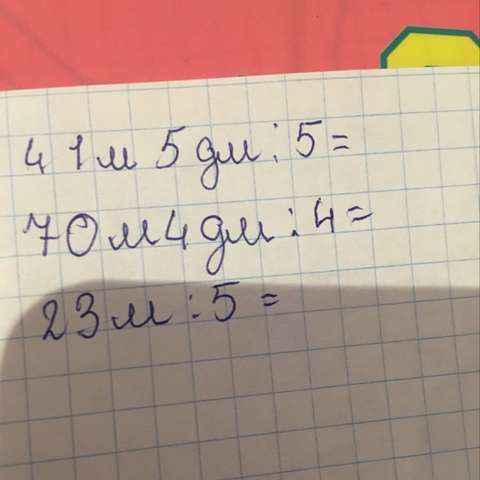 41м 5дм:5=
70м4дм:4=
23м:5=